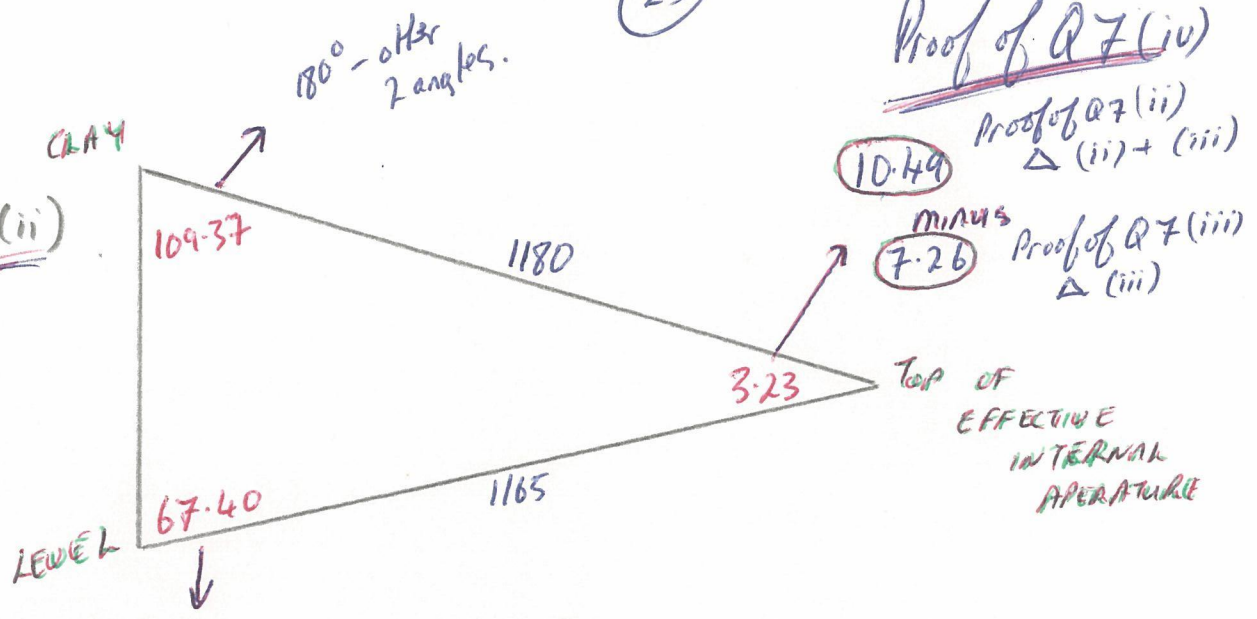 Proof of Q7(iv)
180° - other
2 angles.
Proof of Q7(ii)
Δ (ii) + (iii)
10.49
minus
7.26
Proof of Q7(iii)
Δ (iii)
CLAY
(ii)
109.37
1180
3.23
TOP OF
EFFECTIVE
INTERNAL
APERATURE
1165
67.40
LEVEL